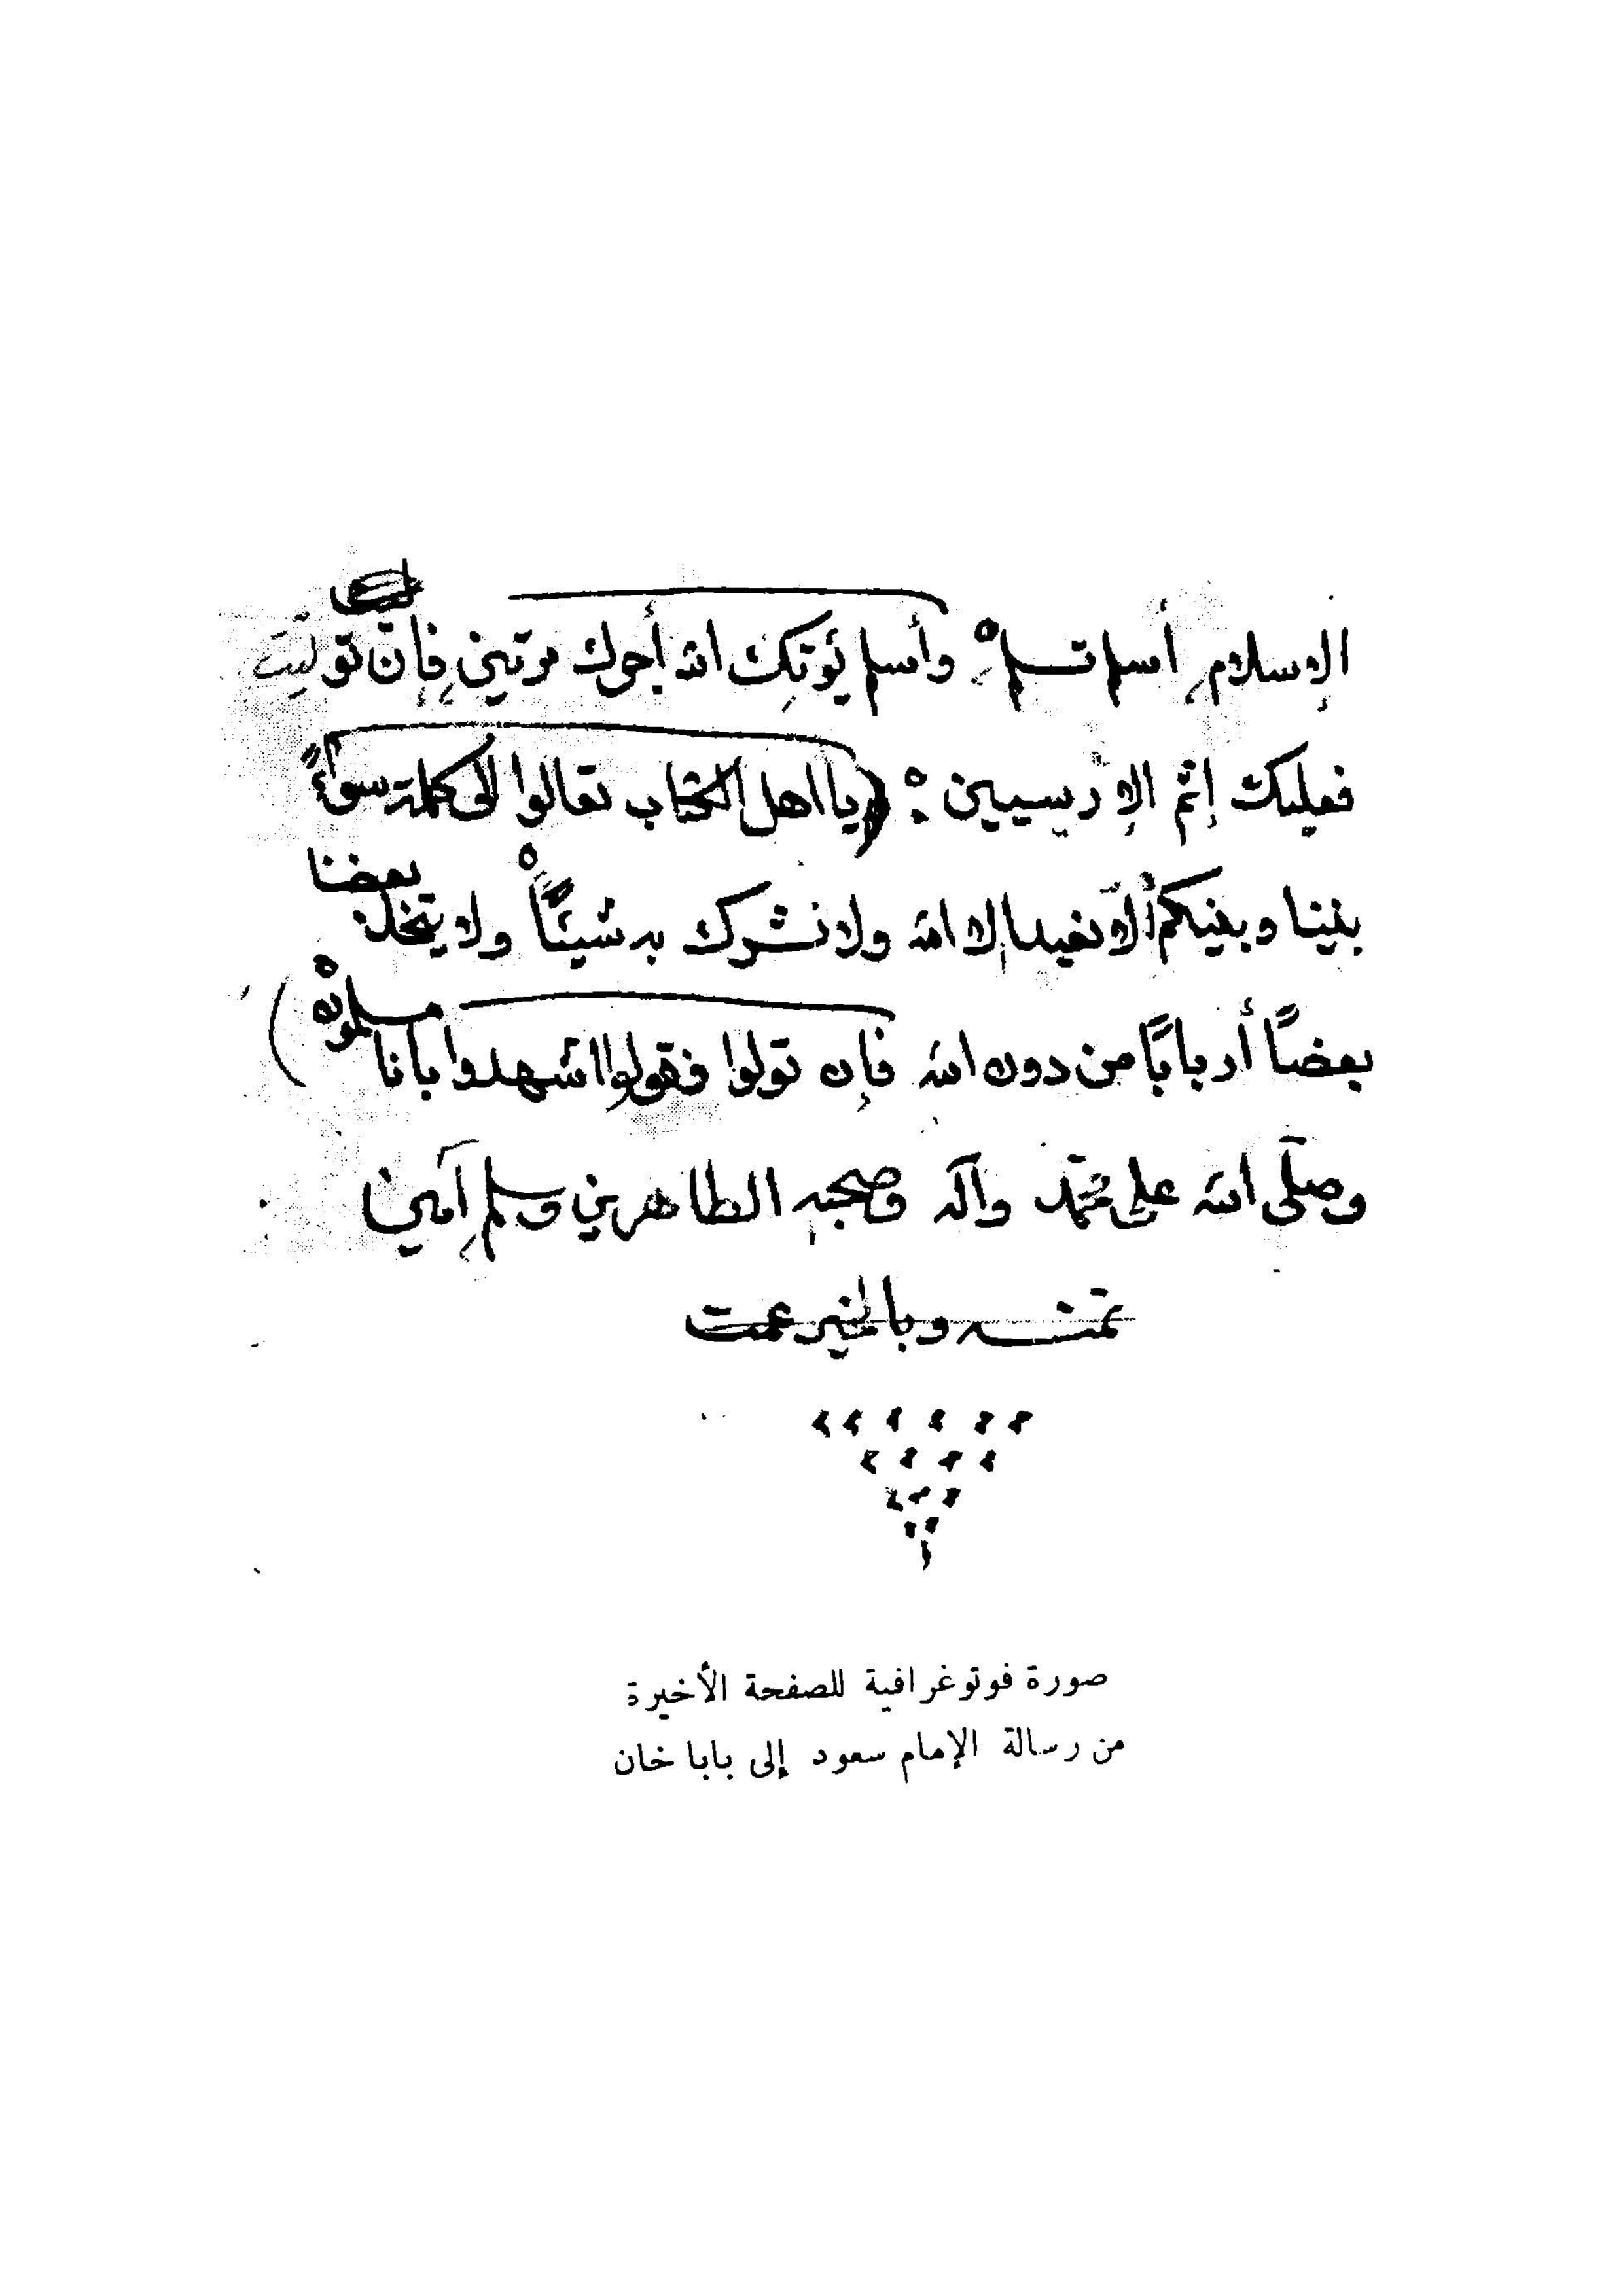 الإسلامِ أسلم تسلمْ وأسلم يُؤتِكَ الله أجرك مرتينِ فإن تولّيت
فعليك إثم الإريسيين : (يا اهل الكتاب تعالوا الى كلمة سواءً
بيننا وبينكم ألّا نعبد الا الله ولا نشرك به شيئاً ولا يتخذ بعضنا
بعضاً أرباباً من دون الله فإن تولوا فقولوا اشهدوا بأنا مسلمونْ )
وصلّى الله على محمّد وآله وصحبه الطاهرين وسلم آمين
تمت وبالخير عمت
صورة فوتوغرافية للصفحة الأخيرة
من رسالة الإمام سعود إلى بابا خان